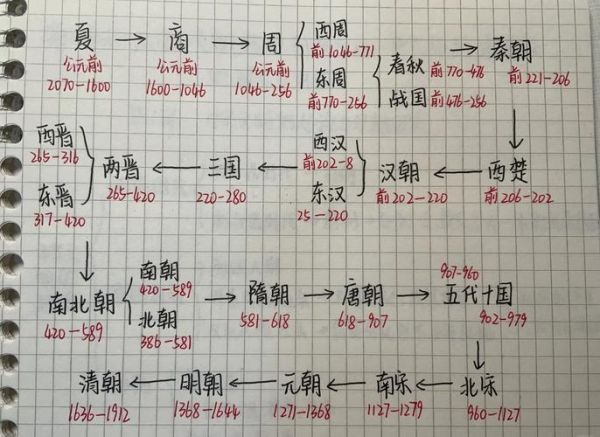 夏 → 商 → 周 西周 春秋 → 秦朝
公元前 2070-1600
公元前 1600-1046
公元前 1046-256
前1046-771
东周
前770-256
前770-476
战国 前476-256
前221-206
西晋
265-316
东晋
317-420
两晋 ← 三国 ← 西汉 汉朝 ← 西楚
265-420
220-280
前202-8
东汉
25-220
前202-220
前206-202
南北朝 南朝 → 隋朝 → 唐朝 → 五代十国
420-589
420-589
北朝
386-581
581-618
618-907
907-960
902-979
清朝 ← 明朝 ← 元朝 ← 南宋 ← 北宋
1636-1912
1368-1644
1271-1368
1127-1279
960-1127